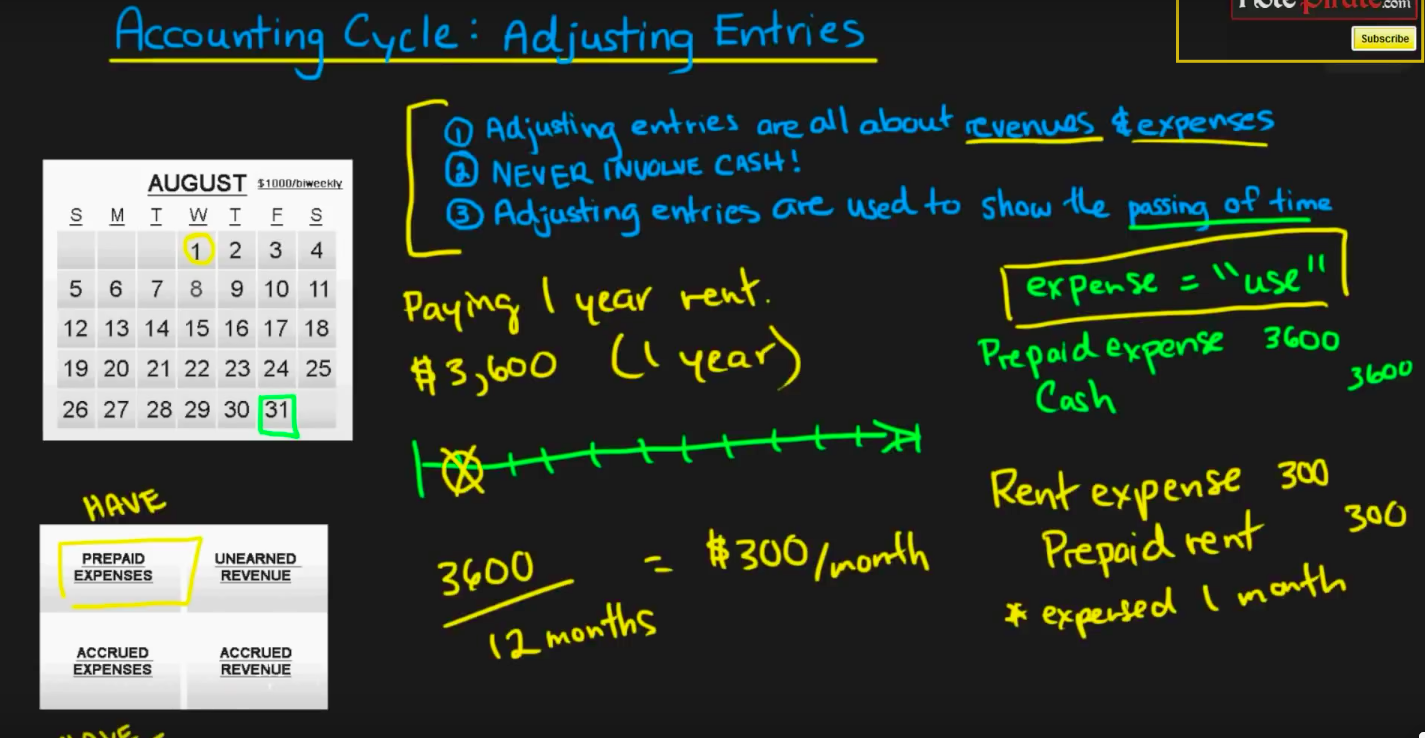 Accounting Cycle: Adjusting Entries
.com
Subscribe
① Adjusting entries are all about revenues & expenses
② NEVER INVOLVE CASH!
③ Adjusting entries are used to show the passing of time
AUGUST $1000/biweekly
S M T W T F S
1 2 3 4
5 6 7 8 9 10 11
12 13 14 15 16 17 18
19 20 21 22 23 24 25
26 27 28 29 30 31
Paying 1 year rent.
$3,600 (1 year)
expense = "use"
Prepaid expense 3600
Cash 3600
3600
12 months
= $300/month
Rent expense 300
Prepaid rent 300
* expensed 1 month
HAVE
PREPAID
EXPENSES
UNEARNED
REVENUE
ACCRUED
EXPENSES
ACCRUED
REVENUE